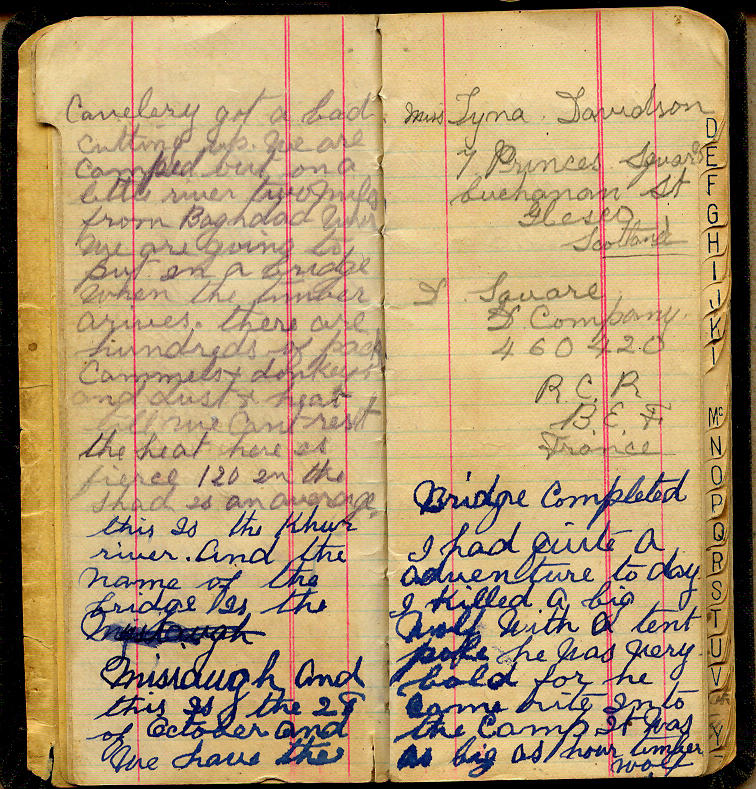 Cavelery got a bad
cutting up. We are
camped out on a
little river two miles
from Baghdad
We are going to
put in a bridge
when the timber
arives. there are
hundreds of pack
Cammels & donkeys
and dust & heat
till we Cant rest
the heat here is
fierce 120 in the
shad is an average
this is the Khur
river. And the
name of the
bridge is the
Missaugh And
this is the 28
of October and
We have the
Miss Tyna Davidson
7 Princes Square
buchanan St
Glesco
Scotland
D. Square
D Company.
460420
R.C.R
B.E.F
France
Bridge Completed
I had quite a
adventure to day.
I Killed a big
Wolf With a tent
pole he was very
bold for he
Came rite in to
the Camp It was
as big as hour timber
wolf
D
E
F
G
H
I
J
K
L
Mc
N
O
P
Q
R
S
T
U
V
Y